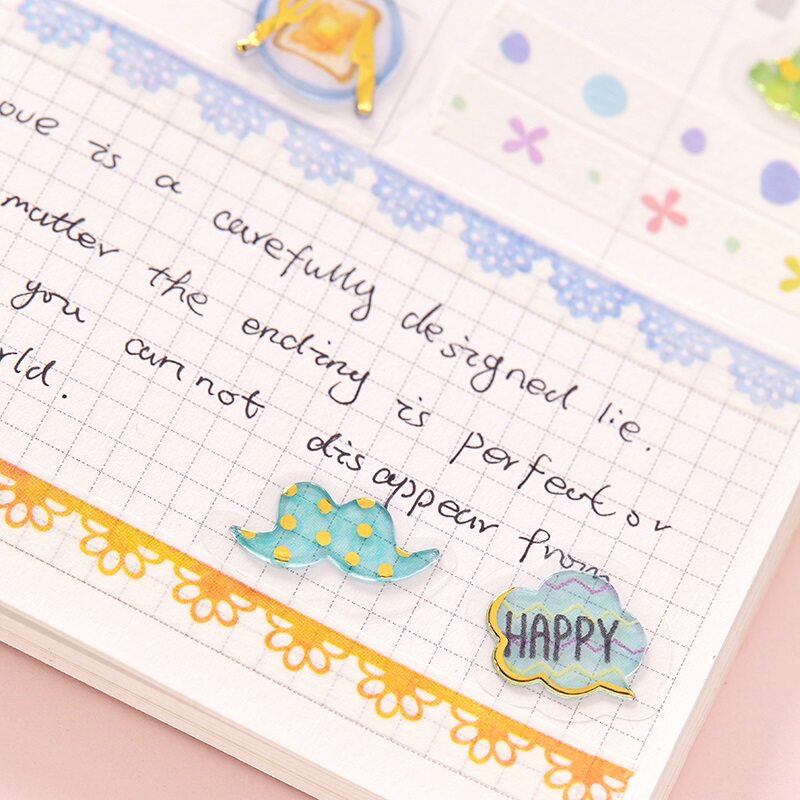 ove is a carefully designed lie.
matter the ending is perfect or
you can not disappear from
rld.
HAPPY